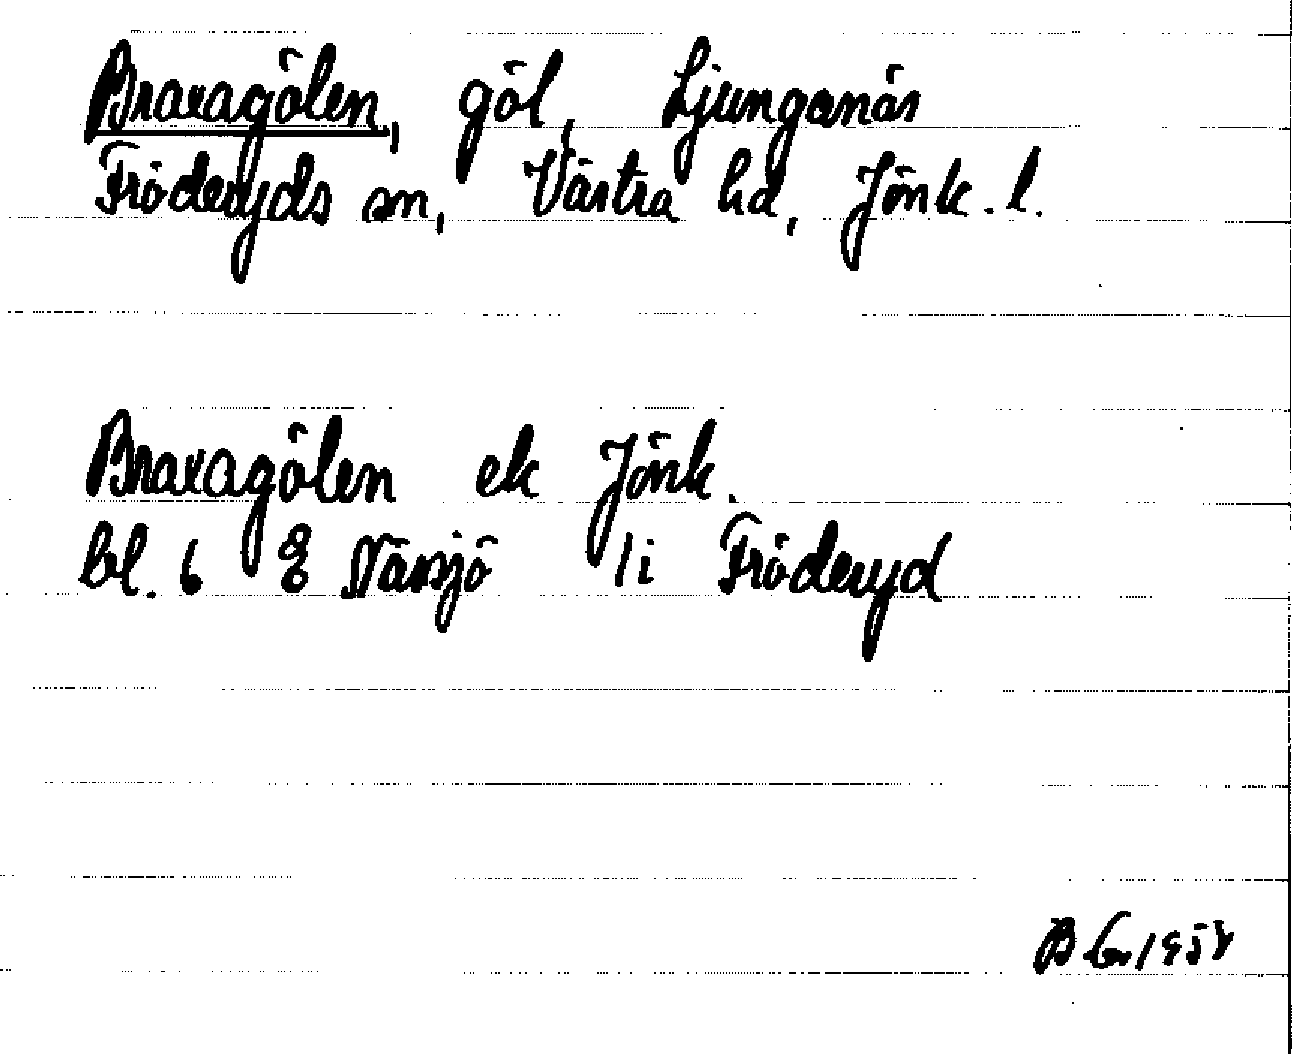 Braxagölen, göl, Ljunganäs
Fröderyds sn, Västra hd, Jönk. l.
Braxagölen ek Jönk.
bl. 6 g Nässjö / i Fröderyd